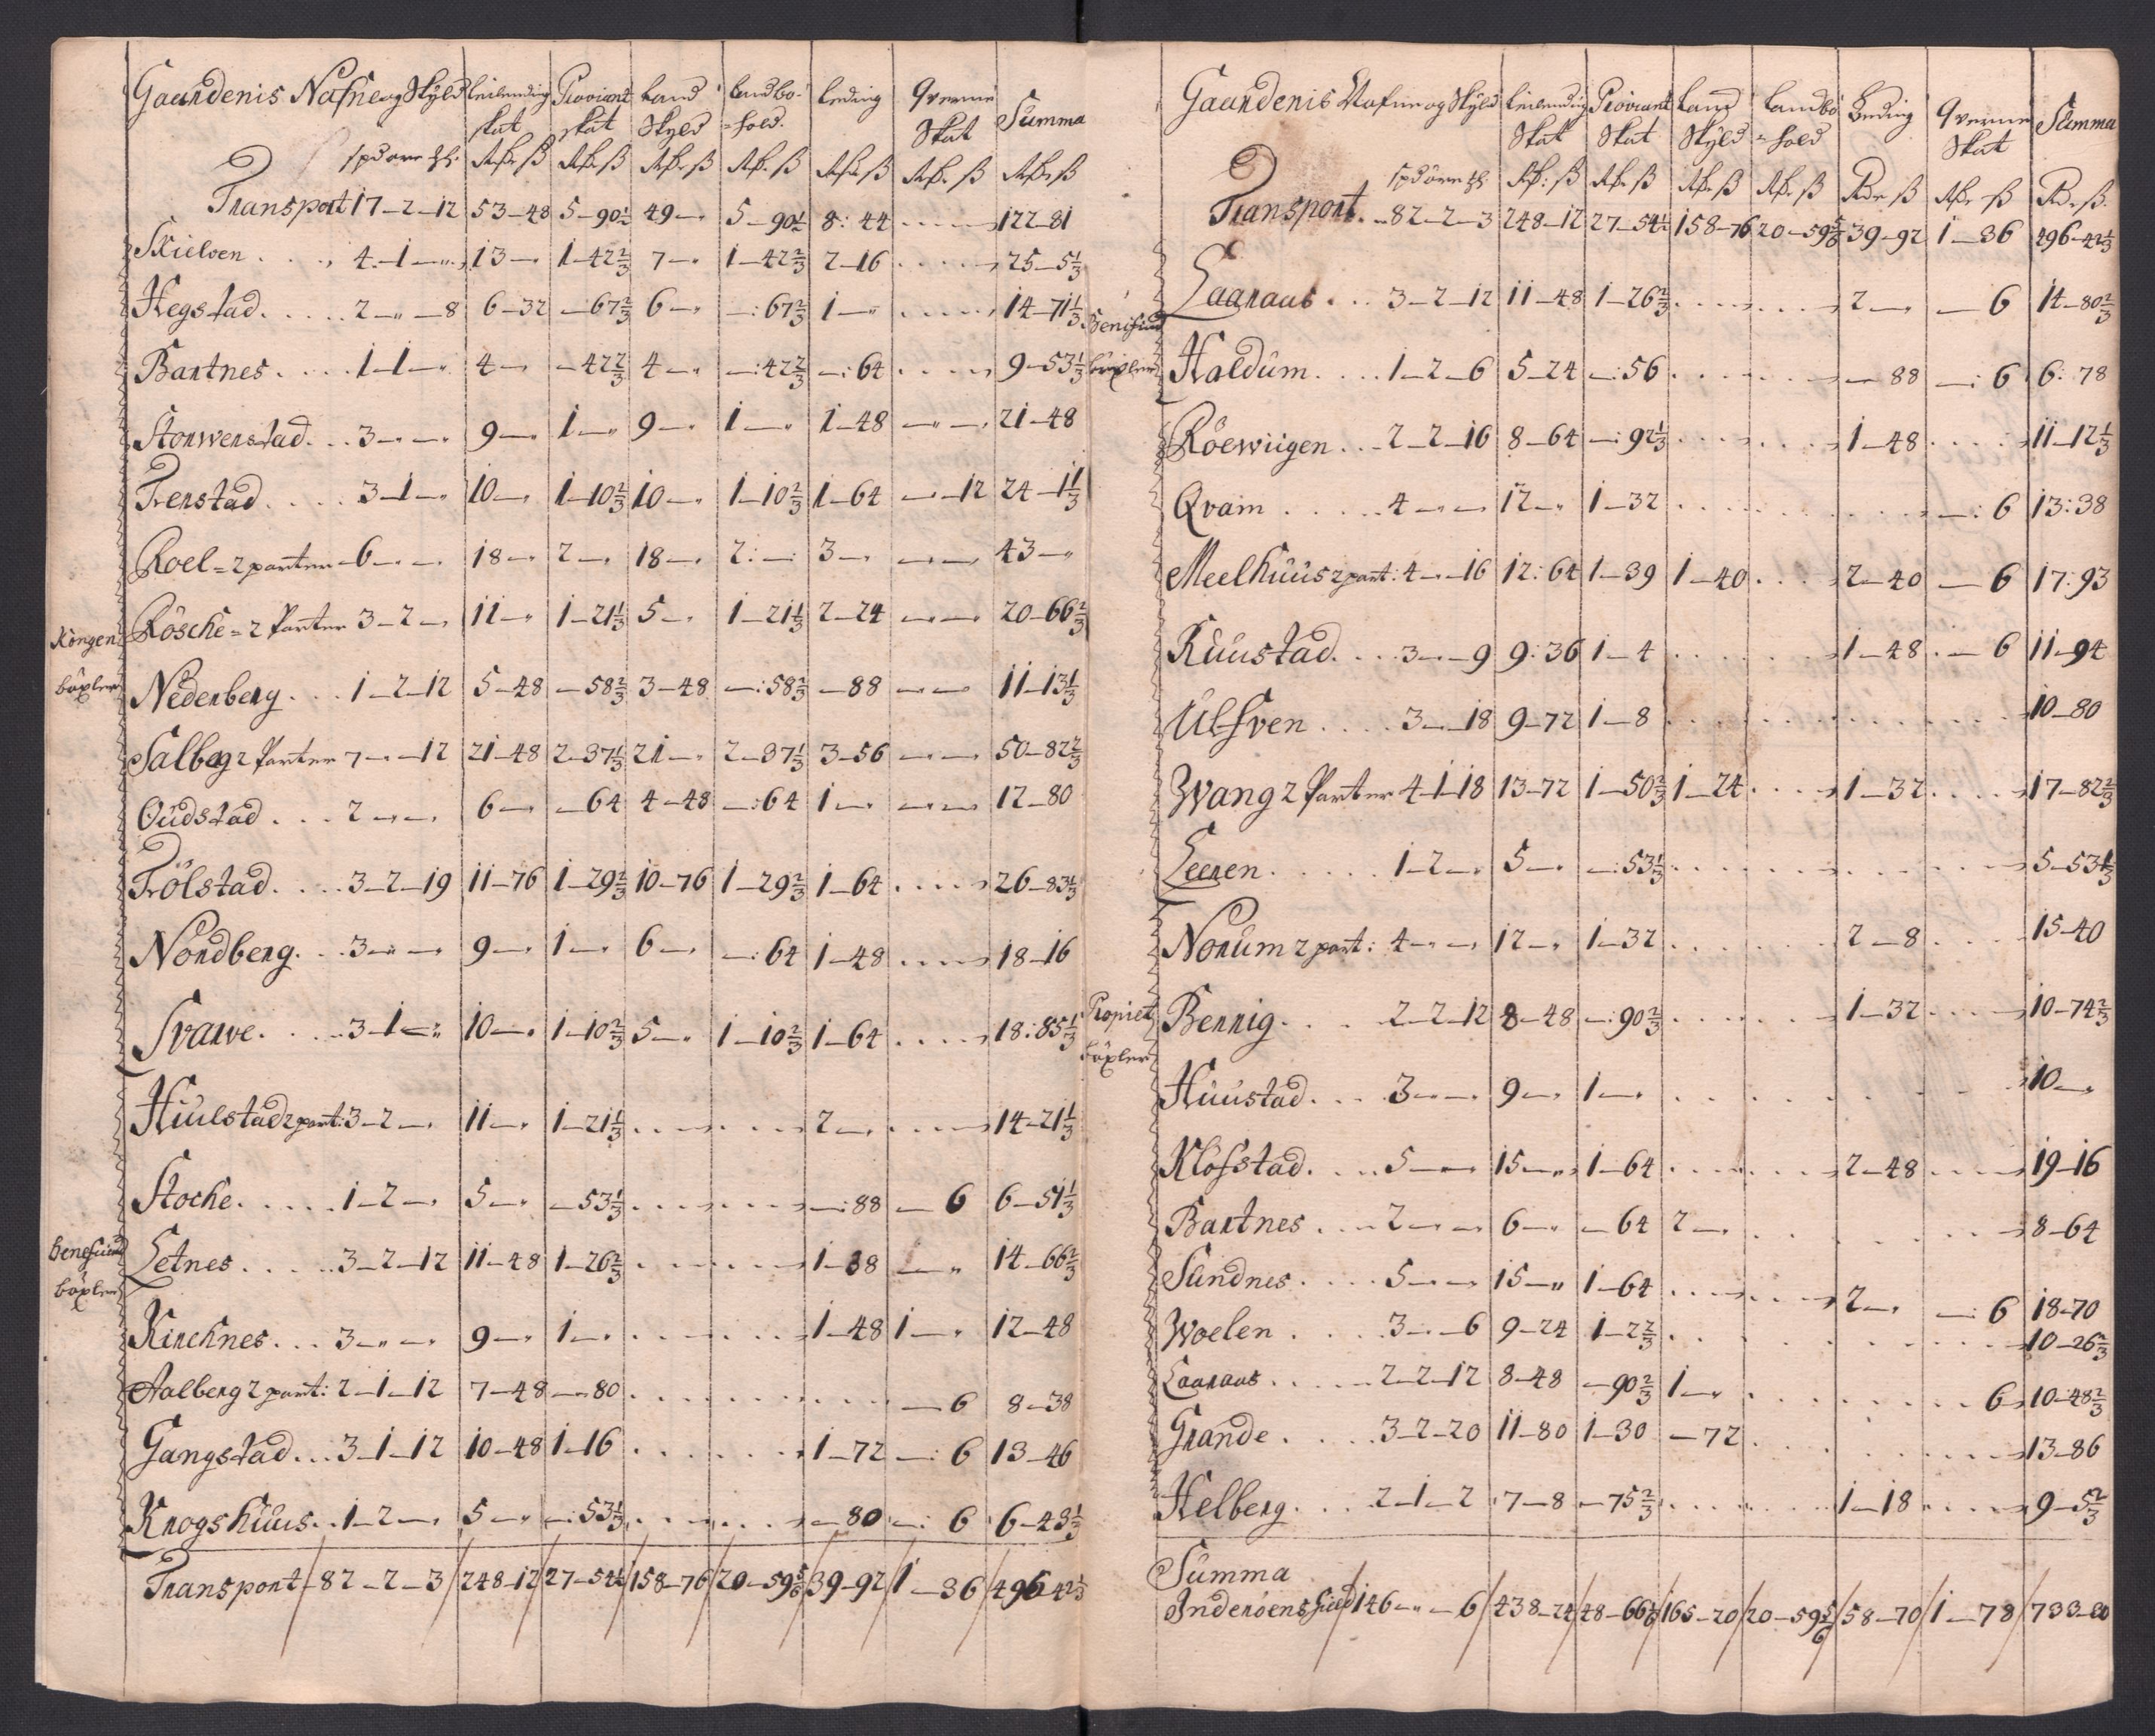 Gaardenis Nafne og Skÿld leilending Proviant Land Landbo= leding Qverne Summa
skat skat Skyld =hold. Skat
spd øre
Transport 17-2-12 53-48 5-90½ 49-" 5-90½ 8:44 ..... 122-81
Skielven .... 4-1-" 13-" 1-42⅔ 7-" 1-42⅔ 2-16 .... 25-5⅓
Hegstad ..... 2-"-8 6-32 -67⅔ 6-" -:67⅔ 1-" ..... 14-71⅓
Bartnes .... 1-1-" 4-" -42⅔ 4-" -:42⅔ -:64 .... 9-53⅓
Storwerstad ... 3-"-" 9-" 1-" 9-" 1-" 1-48 -"- 21-48
Trerstad .... 3-1-" 10-" 1-10⅔ 10-" 1-10⅔ 1-64 -"-12 24-1⅓
Roel=2 parter 6-"-" 18-" 2-" 18-" 2:- 3-" -"- 43-"
Kongen Rösche=2 Parter 3-2-" 11-" 1-21⅓ 5-" 1-21⅓ 2-24 -"- 20-66⅔
böxler Nederberg ... 1-2-12 5-48 -58⅔ 3-48 -:58⅔ -88 -"- 11-13⅓
Salberg 2 Parter 7-"-12 21-48 2-37⅓ 21-" 2-37⅓ 3-56 -"- 50-82⅔
Oudstad .... 2-"-" 6-" -64 4-48 -:64 1-" -"- 12-80
Trölstad .... 3-2-19 11-76 1-29⅔ 10-76 1-29⅔ 1-64 ..... 26-83⅓
Nordberg ... 3-"-" 9-" 1-" 6-" -:64 1-48 .... 18-16
Svarve .... 3-1-" 10-" 1-10⅔ 5-" 1-10⅔ 1-64 .... 18:85⅓
Hüulstad 2 part: 3-2-" 11-" 1-21⅓ ...... 2-" .... 14-21⅓
Stoche ..... 1-2-" 5-" -53⅓ ...... -:88 - 6 6-51⅓
Beneficied böxler Letnes ..... 3-2-12 11-48 1-26⅔ ...... 1-38 -" 14-66⅔
Kirchnes ... 3-"-" 9-" 1-" ...... 1-48 1-" 12-48
Aalberg 2 part: 2-1-12 7-48 -80 ........ - 6 8-38
Gangstad ... 3-1-12 10-48 1-16 ...... 1-72 -: 6 13-46
Krogshüus .. 1-2-" 5-" -:53⅓ ...... -80 -: 6 6-43⅓
Transport 82-2-3 248-12 27-54½ 158-76 20-59⅚ 39-92 1-36 496-42⅓
Gaardenis Nafne og Skÿld leilending Proviant Land Landbo Leding Qverne Summa
Skat Skat Skyld =hold Skat
spd öre
Transport. 82-2-3 248-12 27-54½ 158-76 20-59⅚ 39-92 1-36 496-42⅓
Laaraas ... 3-2-12 11-48 1-26⅔ ...... 2-" - 6 14-80⅔
böxler Haldum .... 1-2-6 5-24 -:56 ...... -88 -: 6 6:78
Röewiigen ... 2-2-16 8-64 -:92⅓ ...... 1-48 .... 11-12⅓
Qvam ..... 4-"-" 12-" 1-32 ........ -: 6 13:38
Meelhüus 2 part: 4-"-16 12:64 1-39 1-40 .... 2-40 - 6 17:93
Rüustad .... 3-"-9 9:36 1-4 ...... 1-48 .- 6 11-94
Ulfven .... 3-"-18 9-72 1-8 ......... 10-80
Wang 2 Parter 4-1-18 13-72 1-50⅔ 1-24 .... 1-32 .... 17-82⅔
Leeren ..... 1-2-" 5-" -:53⅓ ......... 5-53⅓
Norum 2 part: 4-"-" 12-" 1-32 ...... 2-8 .... 15-40
Propriet böxler Berrig .... 2-2-12 8-48 -:90⅔ ...... 1-32 .... 10-74⅔
Hüustad .... 3-"-" 9-" 1-" ........ 10-"
Klofstad .... 5-"-" 15-" 1-64 ...... 2-48 .... 19-16
Bartnes .... 2-"-" 6-" -64 2-" ...... 8-64
Sundnes .... 5-"-" 15-" 1-64 ...... 2-" -: 6 18-70
Woelen .... 3-"-6 9-24 1-2⅔ ........ 10-26⅔
Laaraas ..... 2-2-12 8-48 -90⅔ 1-" ...... 6 10-48⅔
Grande .... 3-2-20 11-80 1-30 -72 ...... 13-86
Helberg .... 2-1-2 7-8 -75⅔ ...... 1-18 .... 9-5⅔
Summa
Inderöens 146-"-6 438-24 48-66⅙ 165-20 20-59⅚ 58-70 1-78 733-30